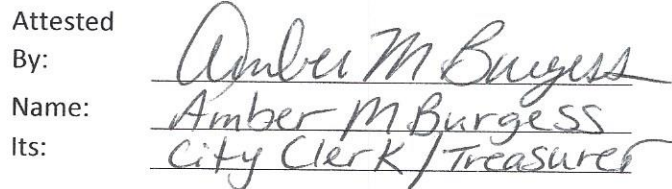 Attested
By: Amber M Burgess
Name: Amber M Burgess
Its: City Clerk / Treasurer